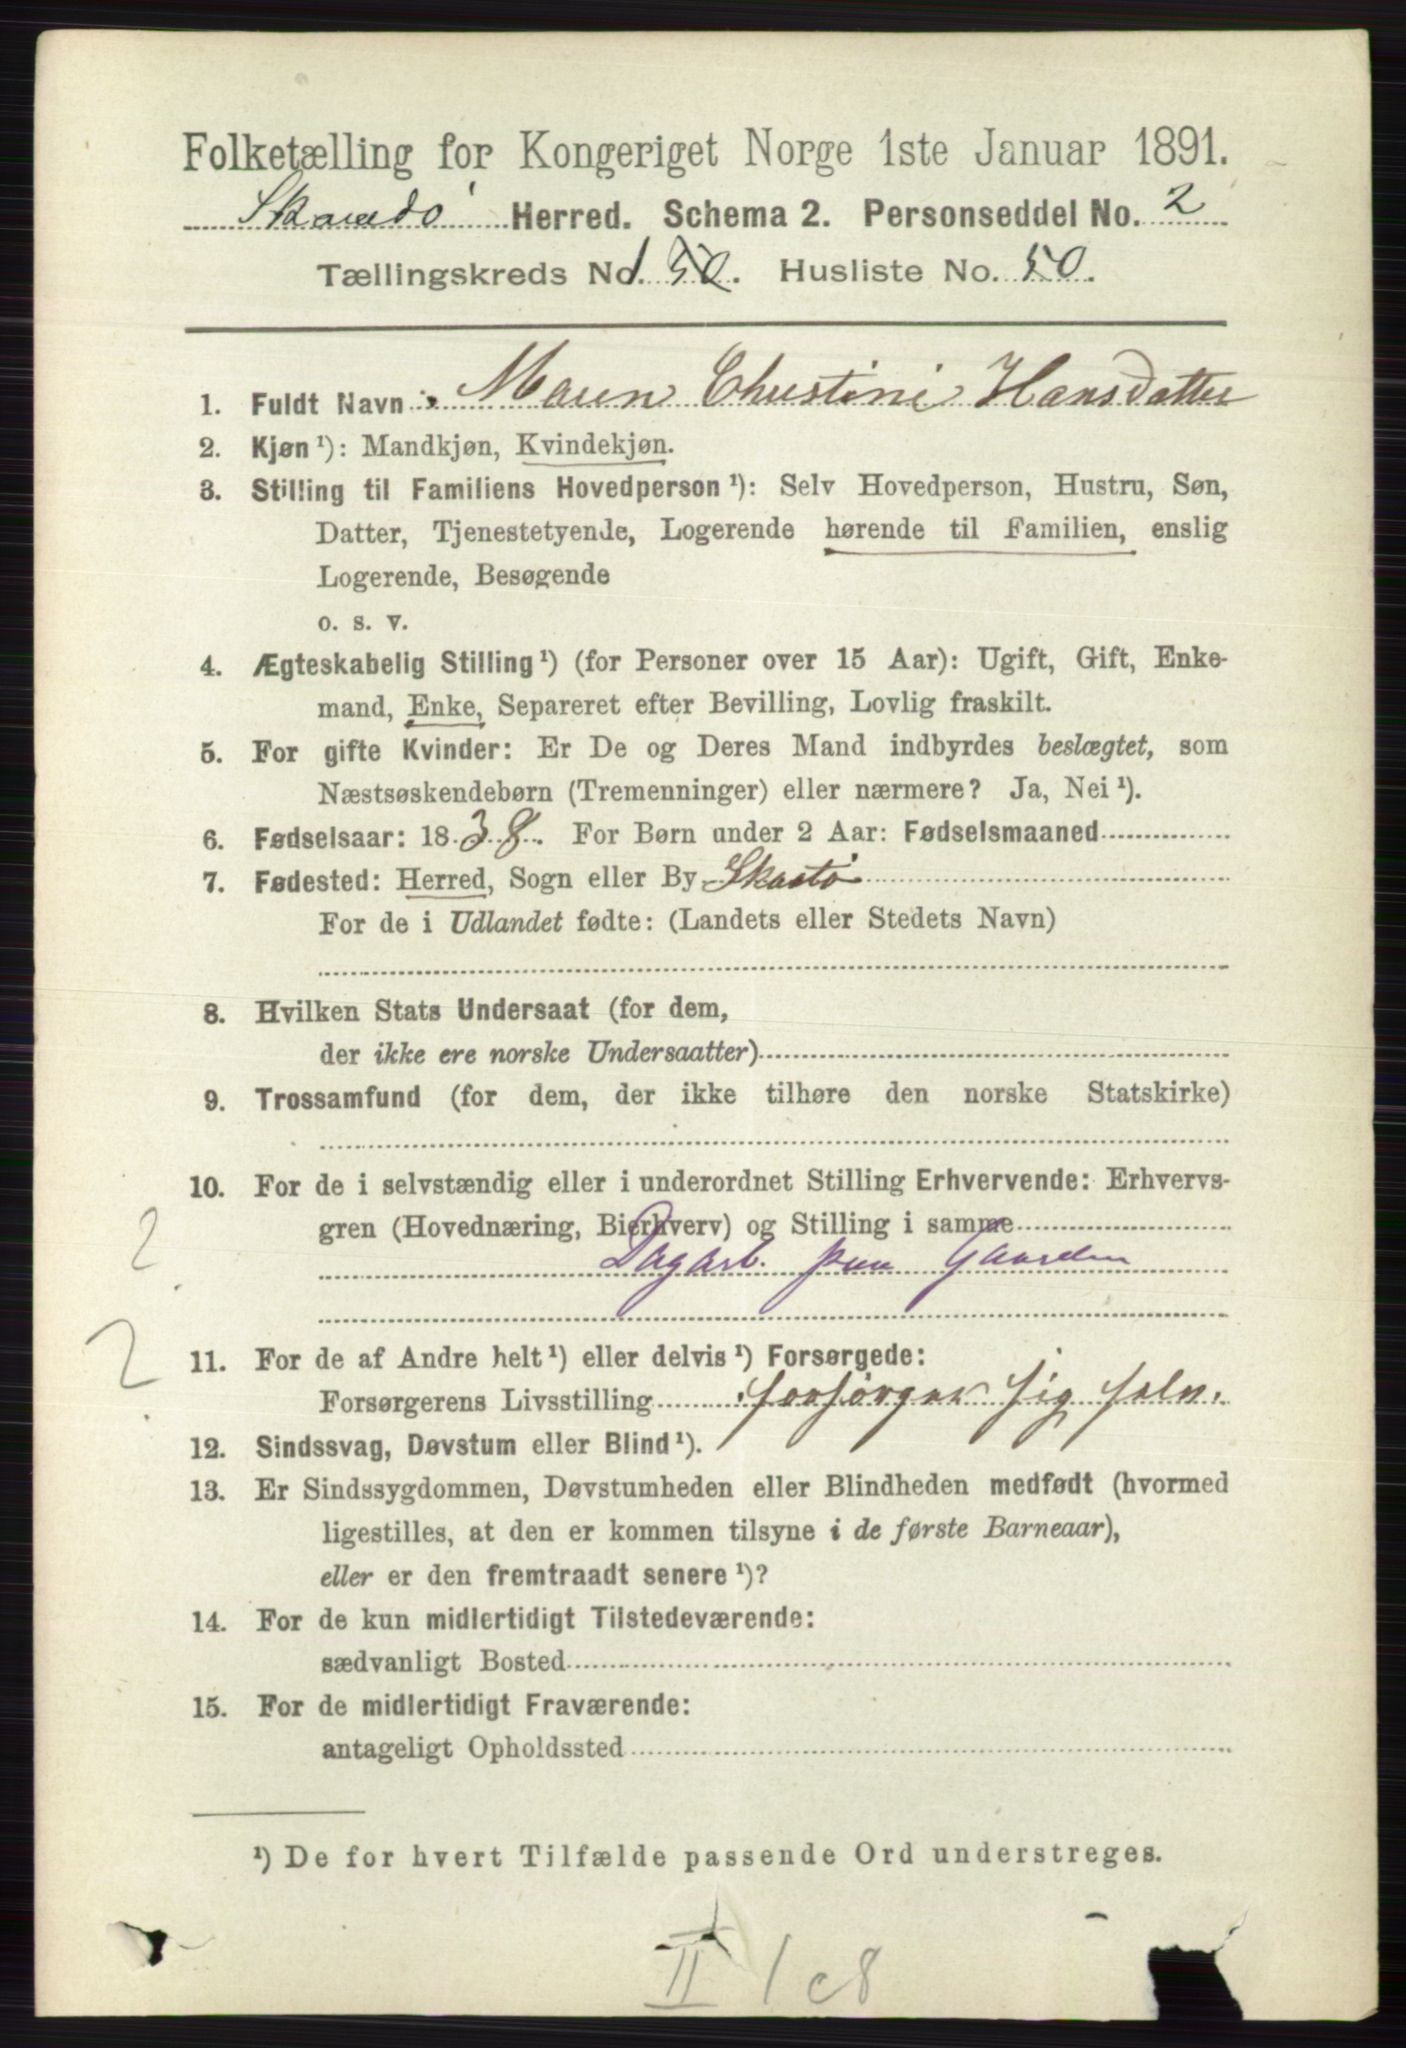 Folketælling for Kongeriget Norge 1ste Januar 1891.
Herred. Schema 2. Personseddel No. 2
Tællingskreds No. 1 50. Husliste No. 50.
1. Fuldt Navn: Maren Christini Hansdatter
2. Kjøn¹): Mandkjøn, Kvindekjøn.
3. Stilling til Familiens Hovedperson¹): Selv Hovedperson, Hustru, Søn,
Datter, Tjenestetyende, Logerende hørende til Familien, enslig
Logerende, Besøgende
o. s. v.
4. Ægteskabelig Stilling¹) (for Personer over 15 Aar): Ugift, Gift, Enke-
mand, Enke, Separeret efter Bevilling, Lovlig fraskilt.
5. For gifte Kvinder: Er De og Deres Mand indbyrdes beslægtet, som
Næstsøskendebørn (Tremenninger) eller nærmere? Ja, Nei¹).
6. Fødselsaar: 1838. For Børn under 2 Aar: Fødselsmaaned
7. Fødested: Herred, Sogn eller By Skaatø
For de i Udlandet fødte: (Landets eller Stedets Navn)
8. Hvilken Stats Undersaat (for dem,
der ikke ere norske Undersaatter)
9. Trossamfund (for dem, der ikke tilhøre den norske Statskirke)
10. For de i selvstændig eller i underordnet Stilling Erhvervende: Erhvervs-
gren (Hovednæring, Bierhverv) og Stilling i samme
2 Dagarb. paa Gaarden
2
11. For de af Andre helt¹) eller delvis¹) Forsørgede:
Forsørgerens Livsstilling forsørger sig selv.
12. Sindssvag, Døvstum eller Blind¹).
13. Er Sindssygdommen, Døvstumheden eller Blindheden medfødt (hvormed
ligestilles, at den er kommen tilsyne i de første Barneaar),
eller er den fremtraadt senere¹)?
14. For de kun midlertidigt Tilstedeværende:
sædvanligt Bosted
15. For de midlertidigt Fraværende:
antageligt Opholdssted
¹) De for hvert Tilfælde passende Ord understreges.
II 1 c8